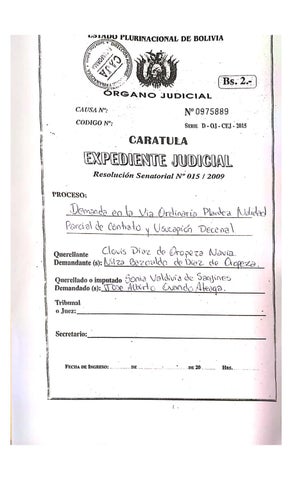 ESTADO PLURINACIONAL DE BOLIVIA
CAJA
Bs. 2.-
ÓRGANO JUDICIAL
CAUSA Nº: Nº 0975889
CODIGO Nº: SERIE D - OJ - CEJ - 2015
CARATULA
EXPEDIENTE JUDICIAL
Resolución Senatorial Nº 015 / 2009
PROCESO:
Demanda en la Via Ordinaria Plantea Nulidad
Parcial de Contrato y Usucapión Decenal
Querellante Clovis Diaz de Oropeza Navia
Demandante (s): Nilza de Diaz de Oropeza.
Querellado o imputado Sonia Valdivia de Sanjines
Demandado (s): Jose Alberto
Tribunal
o Juez:
Secretario:
FECHA DE INGRESO: de de 20 HRS.